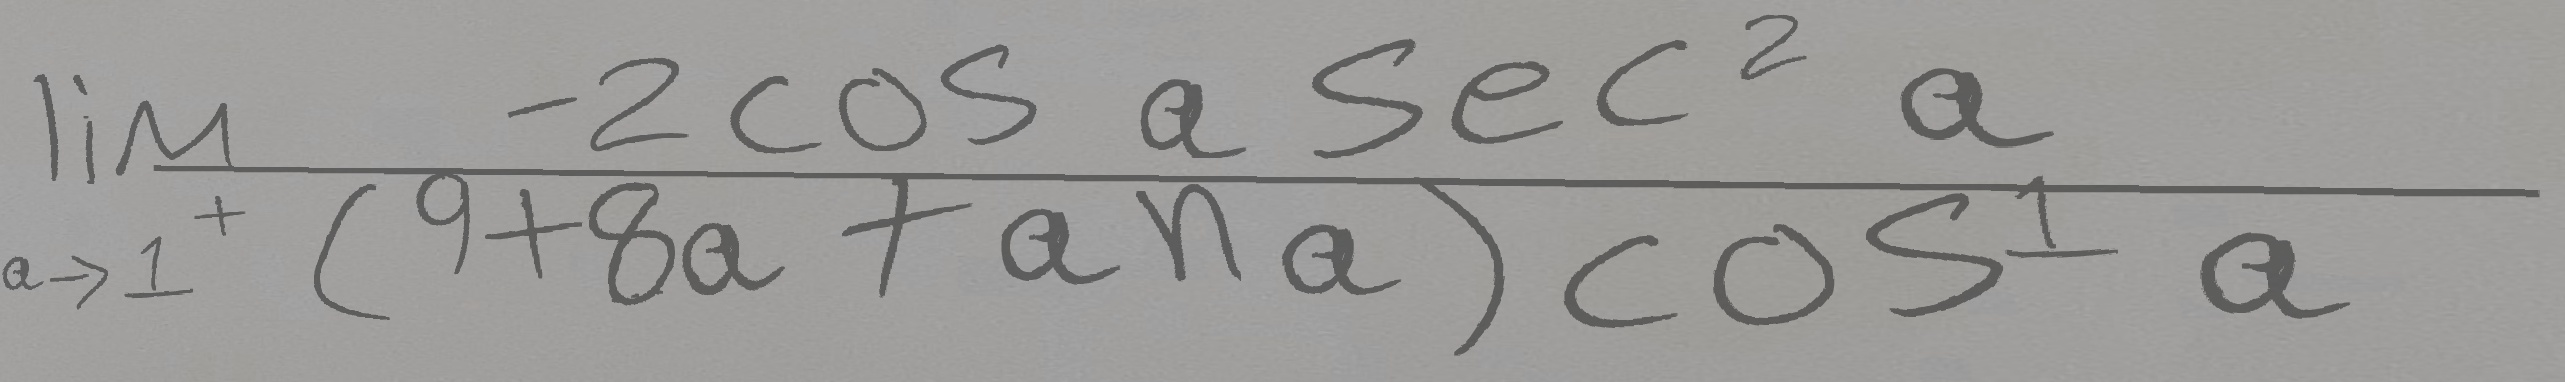 \lim_{a \to 1^{+}} \frac{-2 \cos a \sec^{2} a}{(9 + 8a \tan a) \cos^{1} a}